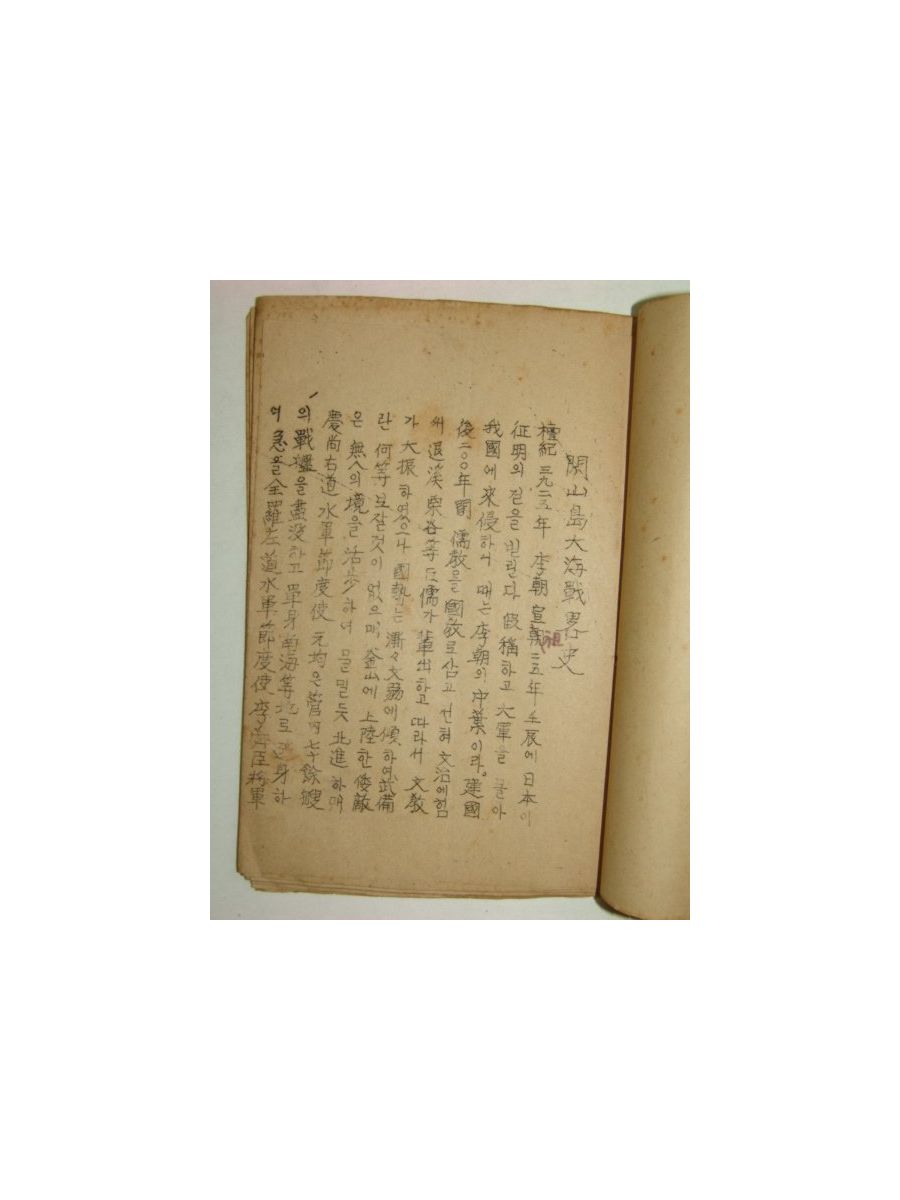 閑山島大海戰畧史
檀紀三九二五年 李朝 宣朝祖二五年 壬辰에 日本이
征明의 길을 빌린다 假稱하고 大軍을 몰아
我國에 來侵하니 때는 李朝의 中葉이라。建國
後二〇〇年間 儒敎를 國敎로 삼고 전혀 文治에힘
써 退溪 栗谷等 巨儒가 輩出하고 따라서 文敎
가 大振 하였으나 國勢는 漸々文弱에 傾하여武備
란 何等 보잘것이 없으매 釜山에 上陸한 倭敵
은 無人의境을 活步하여 물밀듯 北進하매
慶尙右道 水軍節度使 元均은 管內 七十餘艘
의 戰艦을 盡沒하고 單身南海等地로 身하
여 急을 全羅左道水軍節度使 李舜臣將軍